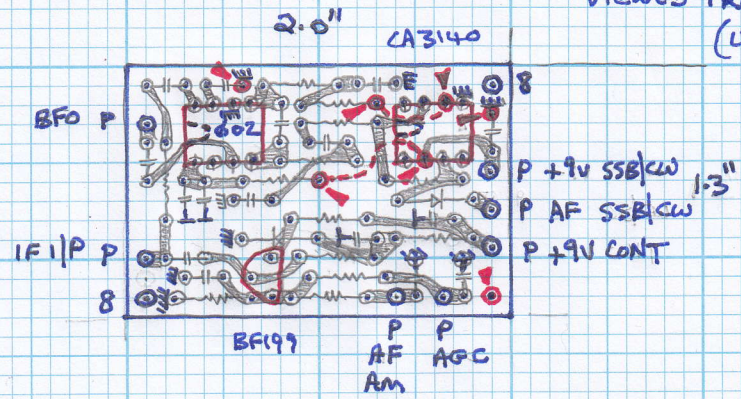 VIEWED
2.0"
CA3140
E
8
BFO P
602
P +9V SSB/CW
1.3"
P AF SSB/CW
IF I/P P
P +9V CONT
8
BF199
P
AF
AM
P
AGC